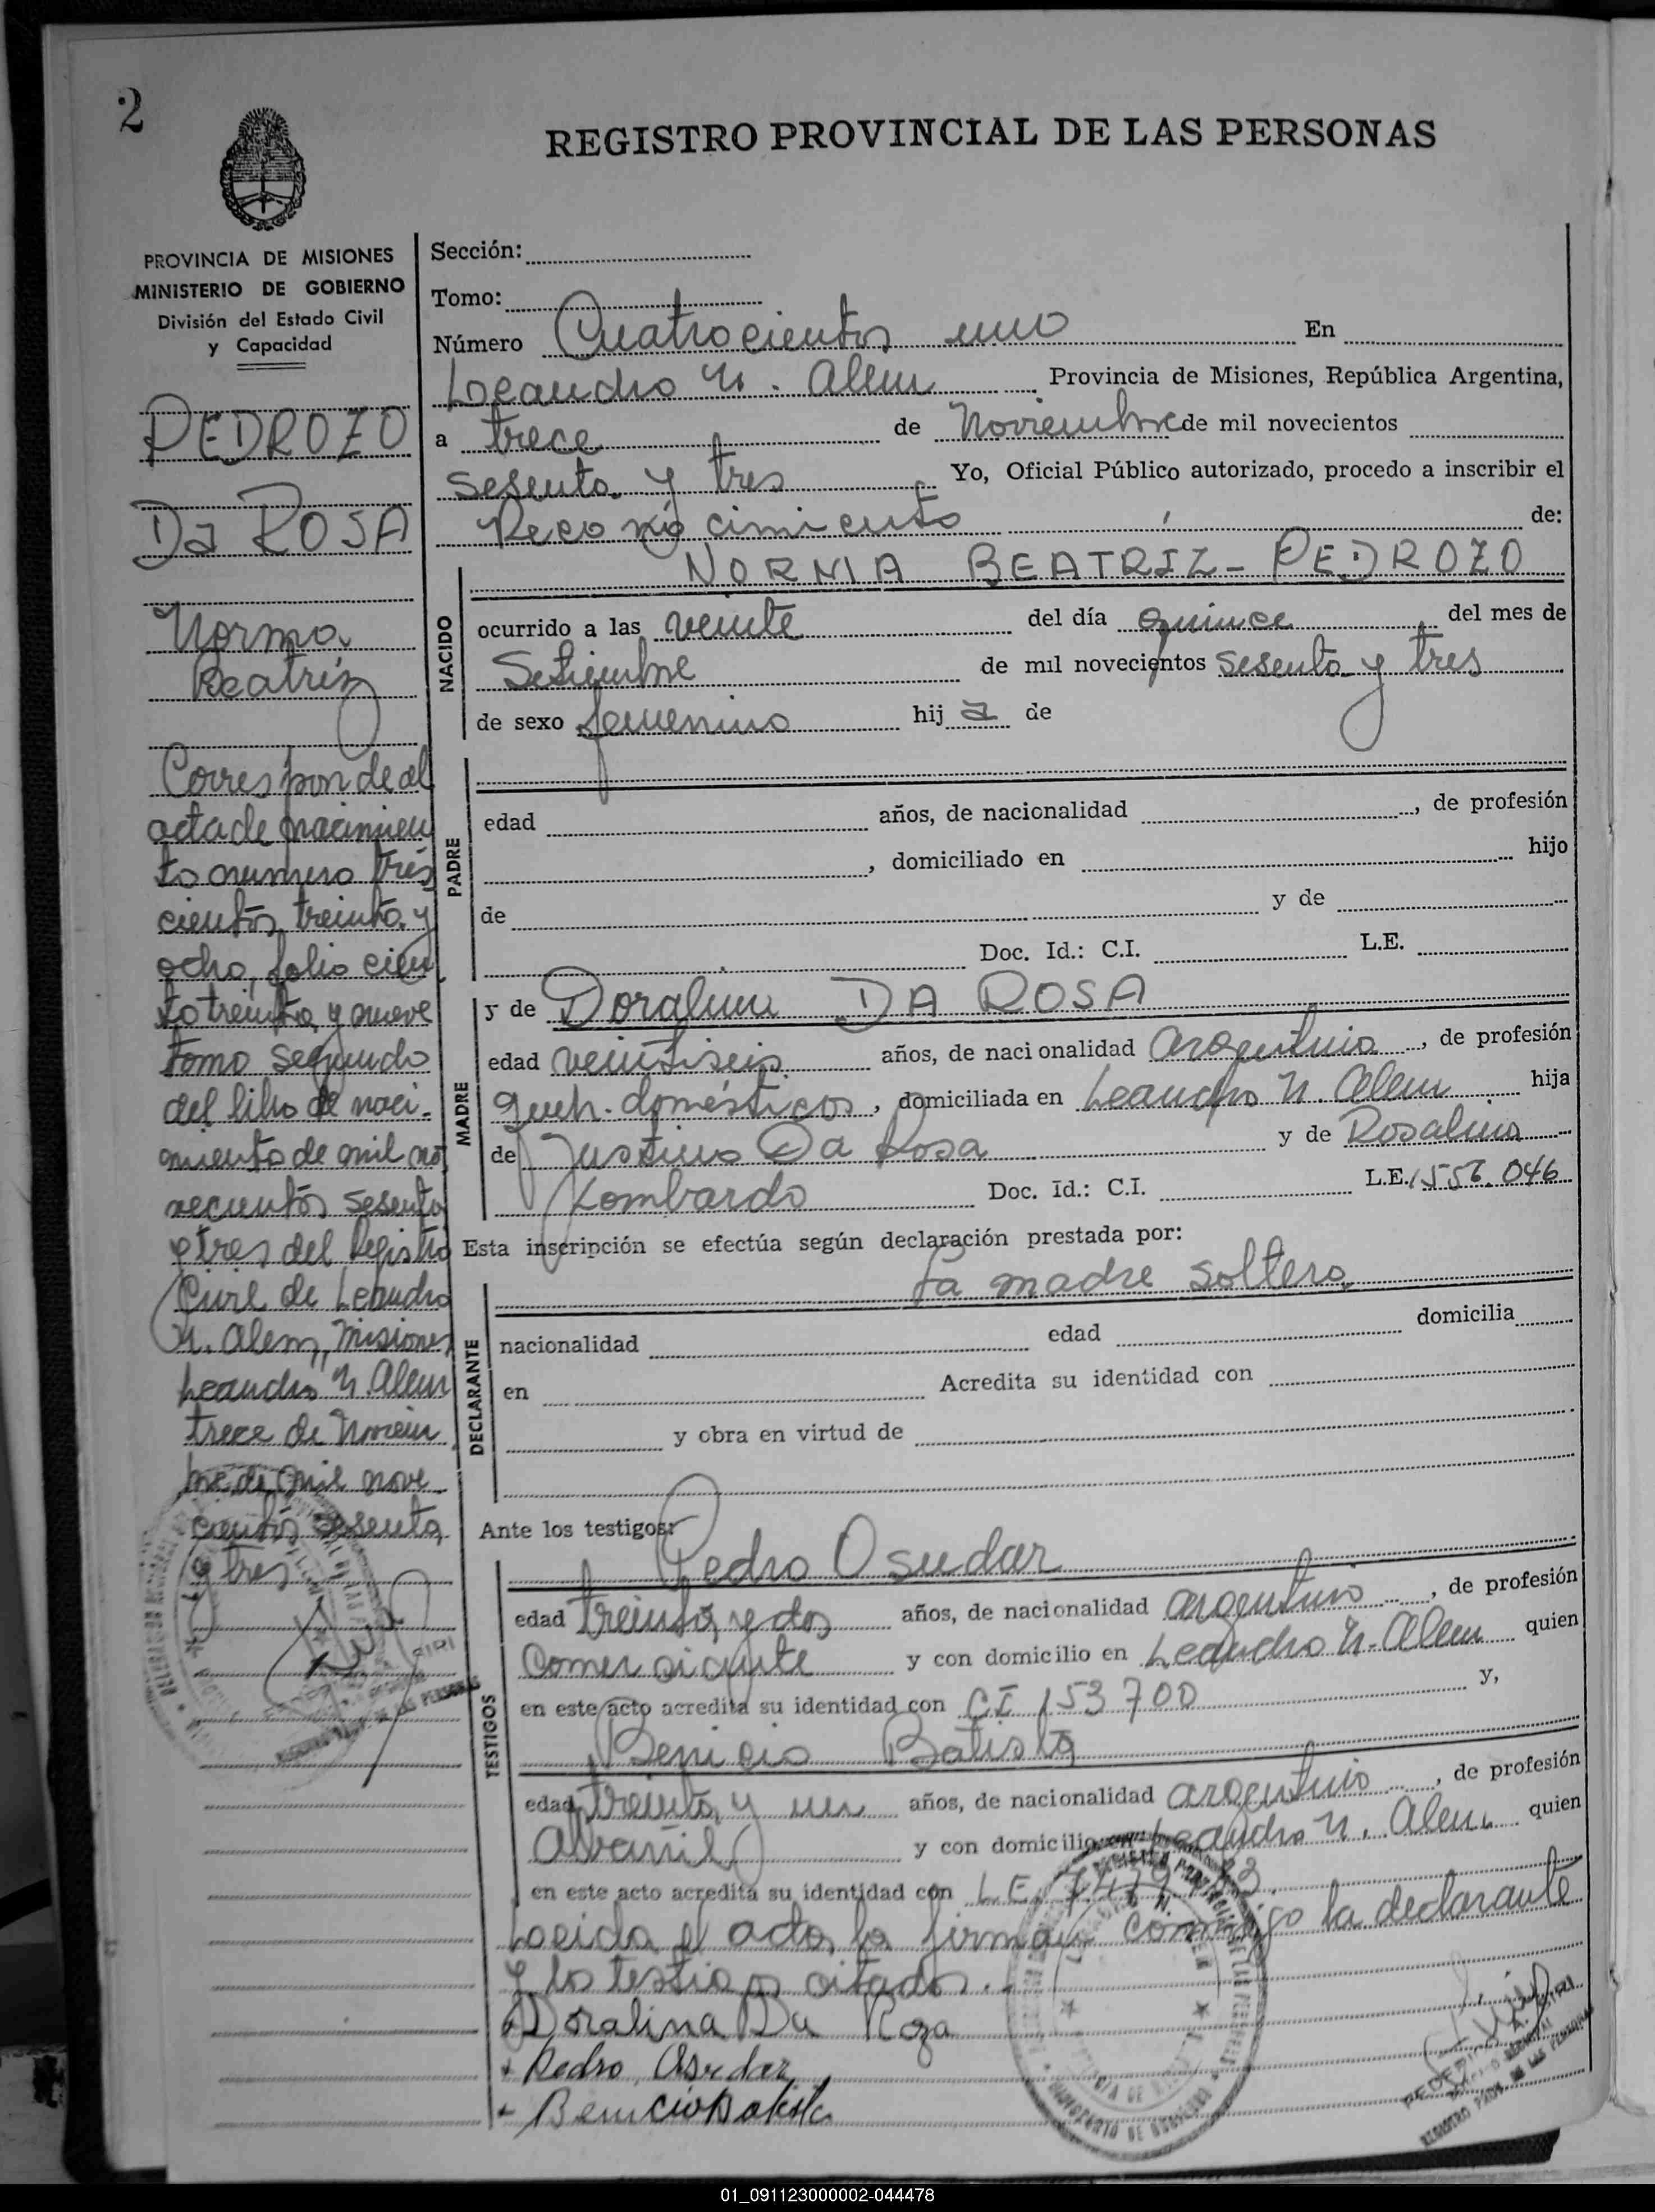 2
REGISTRO PROVINCIAL DE LAS PERSONAS
PROVINCIA DE MISIONES
MINISTERIO DE GOBIERNO
División del Estado Civil
y Capacidad
PEDROZO
Da ROSA
Norma
Beatriz
Corresponde al
acta de nacimien
to numero tres
cientos treinta y
ocho, folio cien
to treinta y nueve
tomo segundo
del libro de naci-
miento de mil no
vecientos sesenta
y tres del Registro
Civil de Leandro
N. Alem, Misiones
Leandro N. Alem
trece de Noviem
bre de mil nove-
cientos sesenta
y tres
Sección:
Tomo:
Número Cuatrocientos uno En
Leandro N. Alem Provincia de Misiones, República Argentina,
a trece de Noviembre de mil novecientos
sesenta y tres Yo, Oficial Público autorizado, procedo a inscribir el
Reconocimiento de:
NORMA BEATRIZ - PEDROZO
NACIDO
ocurrido a las veinte del día quince del mes de
Setiembre de mil novecientos sesenta y tres
de sexo femenino hij a de
PADRE
edad años, de nacionalidad , de profesión
, domiciliado en hijo
de y de
Doc. Id.: C.I. L.E.
MADRE
y de Doralina DA ROSA
edad veintiseis años, de nacionalidad argentina, de profesión
queh. domésticos, domiciliada en Leandro N. Alem hija
de Justino Da Rosa y de Rosalina
Lombardo Doc. Id.: C.I. L.E. 1556.046
Esta inscripción se efectúa según declaración prestada por:
La madre soltera
DECLARANTE
nacionalidad edad domicilia
en Acredita su identidad con
y obra en virtud de
Ante los testigos:
Pedro Osudar
TESTIGOS
edad treinta y dos años, de nacionalidad argentino, de profesión
Comerciante y con domicilio en Leandro N. Alem quien
en este acto acredita su identidad con CI 153700 y,
Benicio Batista
edad treinta y un años, de nacionalidad argentino, de profesión
Albañil y con domicilio en Leandro N. Alem quien
en este acto acredita su identidad con L E
Leida el acta, la firman conmigo la declarante
y los testigos citados.
Doralina Da Roza
+ Pedro Osudar
+ Benicio Batista
01_091123000002-044478